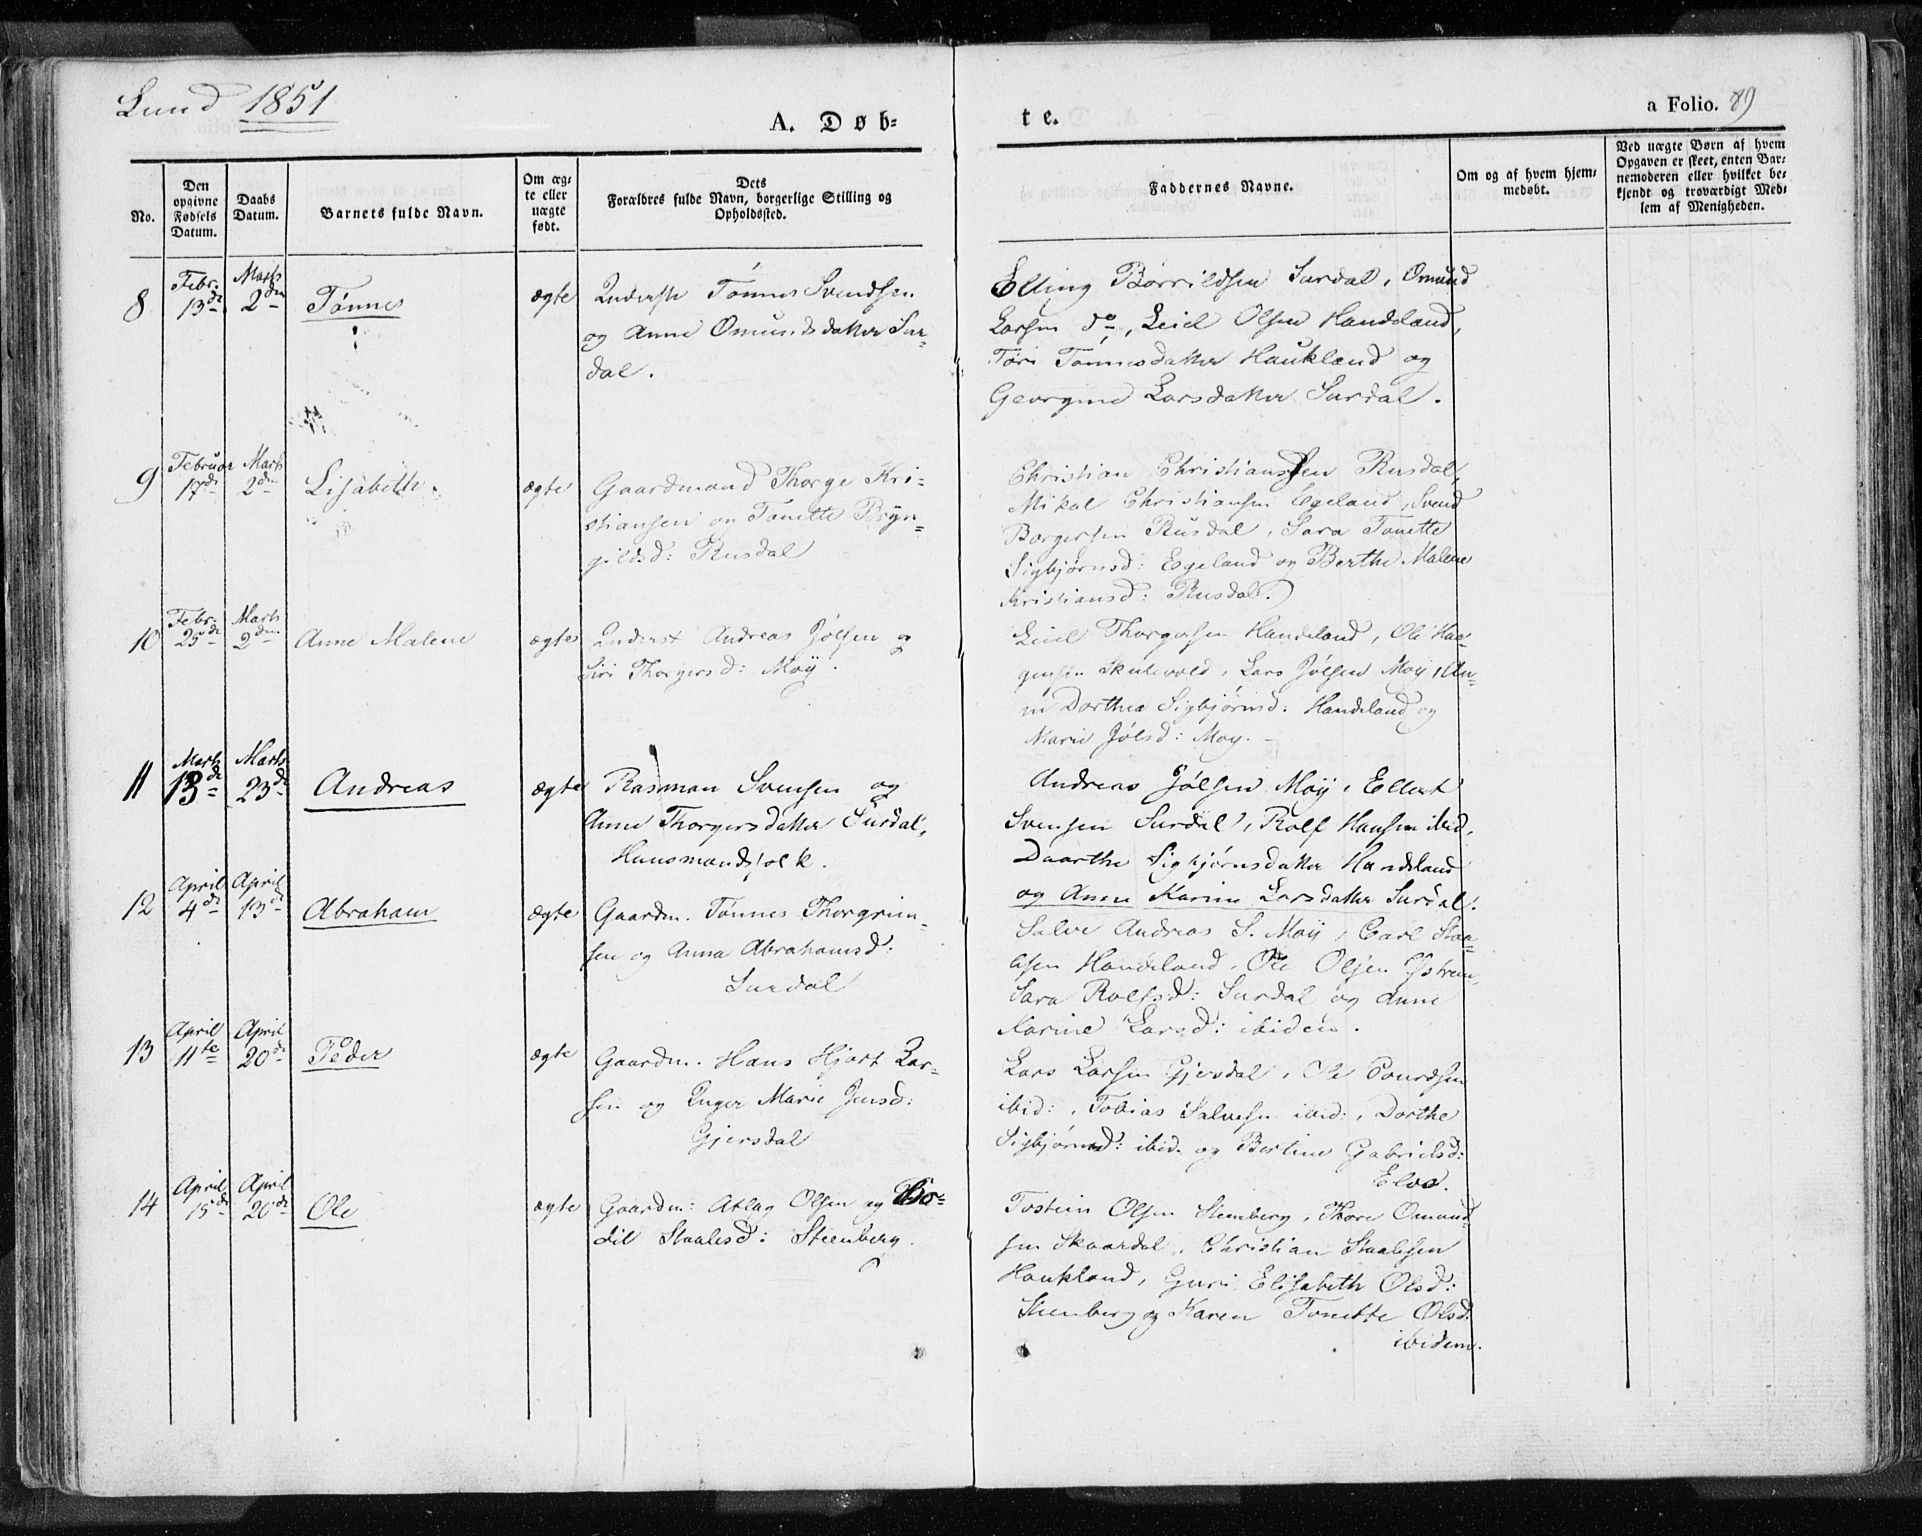 Lund 1851
A. Døb-
te.
a Folio. 89
No.
Den opgivne Fødsels Datum.
Daabs Datum.
Barnets fulde Navn.
Om ægte eller uægte født.
Dets Forældres fulde Navn, borgerlige Stilling og Opholdssted.
Faddernes Navne.
Om og af hvem hjemmedøbt.
Ved uægte Børn af hvem Opgaven er skeet, enten Barnemoderen eller hvilket bekjendt og troværdigt Medlem af Menigheden.
8 Febr. 13de Marts 2den Tønnes ægte
Inderste Tønnes Svendsen
og Anne Omundsdatter Sur-
dal.
Elling Børrildsen Surdal, Omund
Larsen do, Leiel Olsen Handeland,
Tøri Tønnesdatter Haukland og
Georgine Larsdatter Surdal.
9 Februar 17de Marts 2den Lisabeth. ægte
Gaardmand Thorge Kri-
stiansen og Tonette Bryn-
gildsd: Rusdal
Christian Christianssen Rusdal,
Mikal Christiansen Egeland, Svend
Borgersen Rusdal, Sara Tonette
Sigbjørnsd: Egeland og Berthe Malene
Kristiansd: Rusdal.
10 Febr. 25de Marts 2den Anne Malene ægte
Inderst Andreas Jølsen og
Siri Thorgersd: Moy.
Leiel Thorgersen Handeland, Ole Haa-
gensen Skulevold, Lars Jølsen Moy, An-
ne Dorthea Sigbjørnsd: Handeland og
Marie Jølsd: Moy.
11 Marts 13de Marts 23de Andreas ægte
Rasman Svensen og
Anne Thorgersdatter Surdal,
Huusmandsfolk.
Andreas Jølsen Moy, Ellert
Svensen Surdal, Rolf Hansen ibid,
Daarthe Sigbjørnsdatter Handeland
og Anne Karine Larsdatter Surdal.
12 April 4de April 13de Abraham ægte
Gaardm. Tønnes Thorgrim-
sen og Anna Abrahamsd:
Surdal
Salve Andreas S. Moy, Carl Staa-
lesen Handeland, Ole Olsen Ystrem,
Sara Rolfsd: Surdal og Anne
Karine Larsd: ibidem.
13 April 11te April 20de Peder ægte
Gaardm. Hans Hjort Lar-
sen og Inger Marie Jensd:
Gjersdal
Lars Larsen Gjersdal, Ole
ibid:, Tobias Salvesen ibid:, Dorthe
Sigbjørnsd: ibid. og Bertine Gabrielsd:
Elve.
14 April 15de April 20de Ole ægte
Gaardm: Atlag Olsen og Bo-
dil Staalesd: Steenberg.
Tostein Olsen Steenberg, Thore Omund-
sen Skaardal, Christian Staalesen
Haukland, Guri Elisabeth Olsd:
Steenberg og Karen Tonette Olsd:
ibidem.